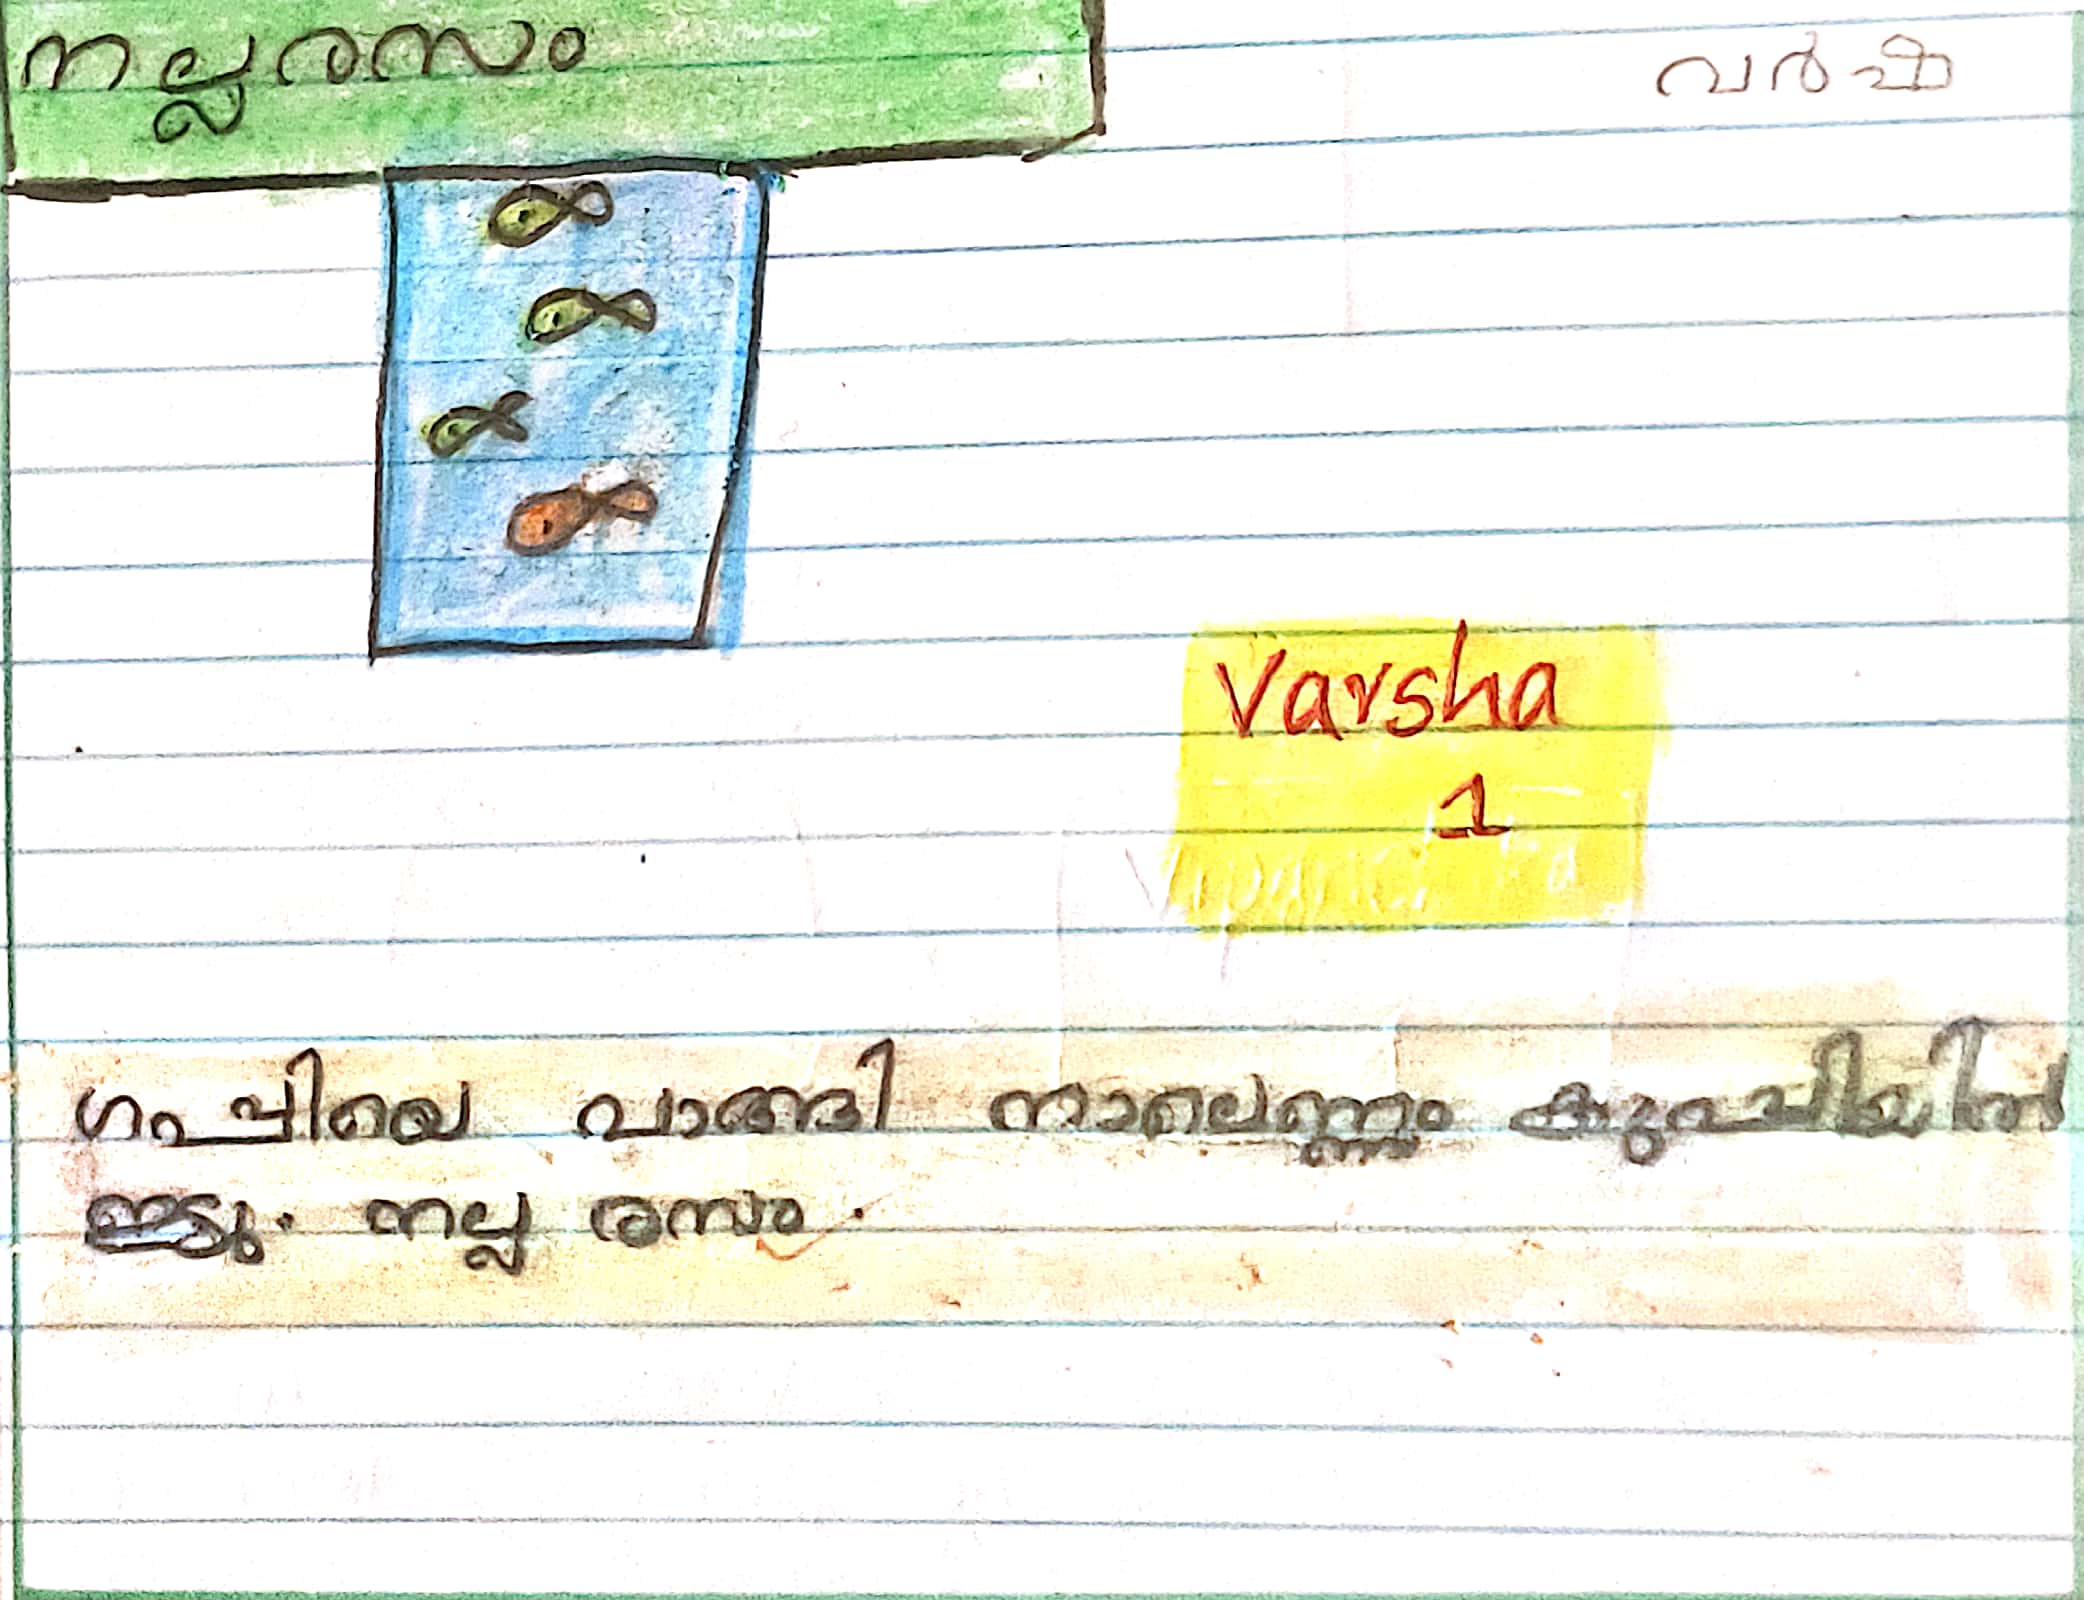 നല്ലരസം
വർഷ
Varsha
1
ഗപ്പിയെ വാങ്ങി നാലെണ്ണം കുപ്പിയിൽ
ഇട്ടു. നല്ല രസം.